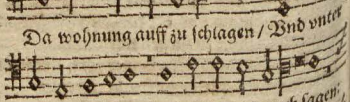 Da wohnung auff zu schlagen / Vnd vnter
sagen